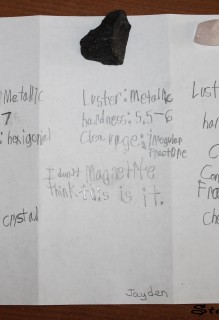 Metallic
7
: hexigonal
crystal
Luster: Metallic
hardness: 5.5-6
Clearage: irregular
fractore
I don't
think this is it.
Magnetite
Jayden
Lust
har
C
Con
Fra
che